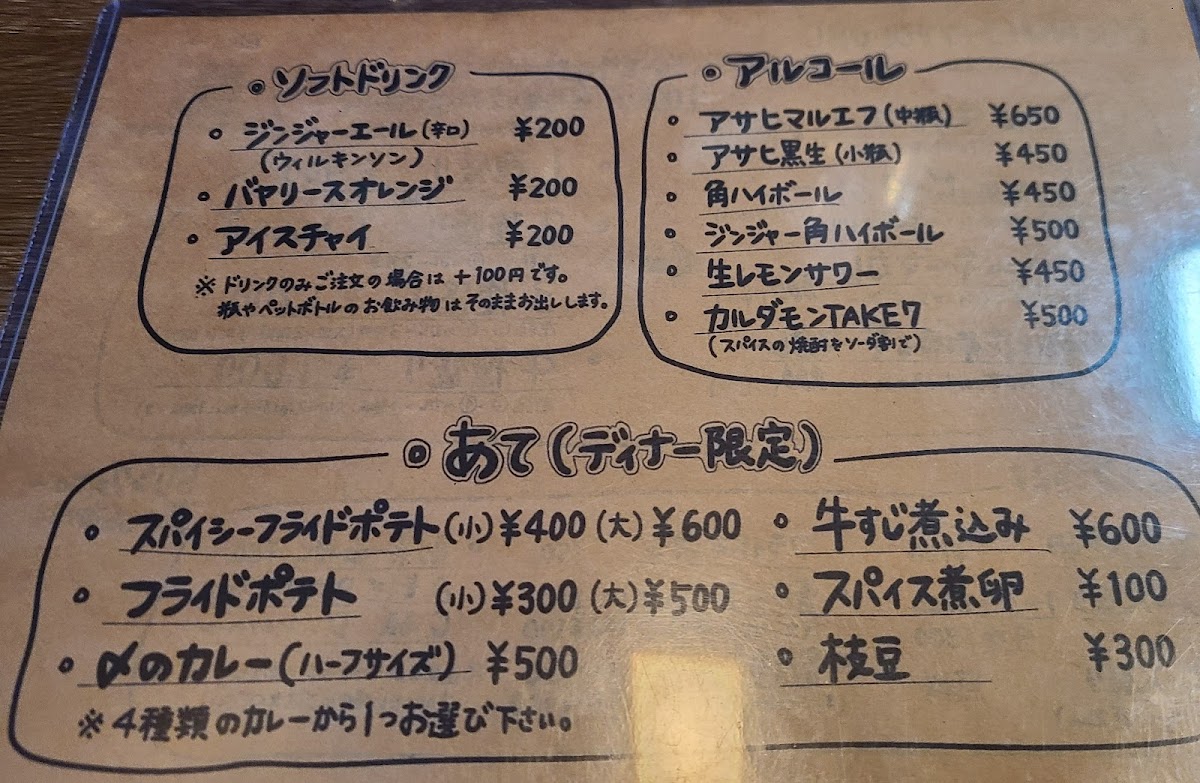 • ソフトドリンク
• ジンジャーエール(辛口) ¥200
(ウィルキンソン)
• バヤリースオレンジ ¥200
• アイスチャイ ¥200
※ドリンクのみご注文の場合は+100円です。
瓶やペットボトルのお飲み物はそのままお出しします。
• アルコール
• アサヒマルエフ(中瓶) ¥650
• アサヒ黒生(小瓶) ¥450
• 角ハイボール ¥450
• ジンジャー角ハイボール ¥500
• 生レモンサワー ¥450
• カルダモンTAKE7 ¥500
(スパイスの焼酎をソーダ割で)
• あて(ディナー限定)
• スパイシーフライドポテト(小)¥400(大)¥600
• フライドポテト (小)¥300(大)¥500
• 〆のカレー(ハーフサイズ) ¥500
※4種類のカレーから1つお選び下さい。
• 牛すじ煮込み ¥600
• スパイス煮卵 ¥100
• 枝豆 ¥300